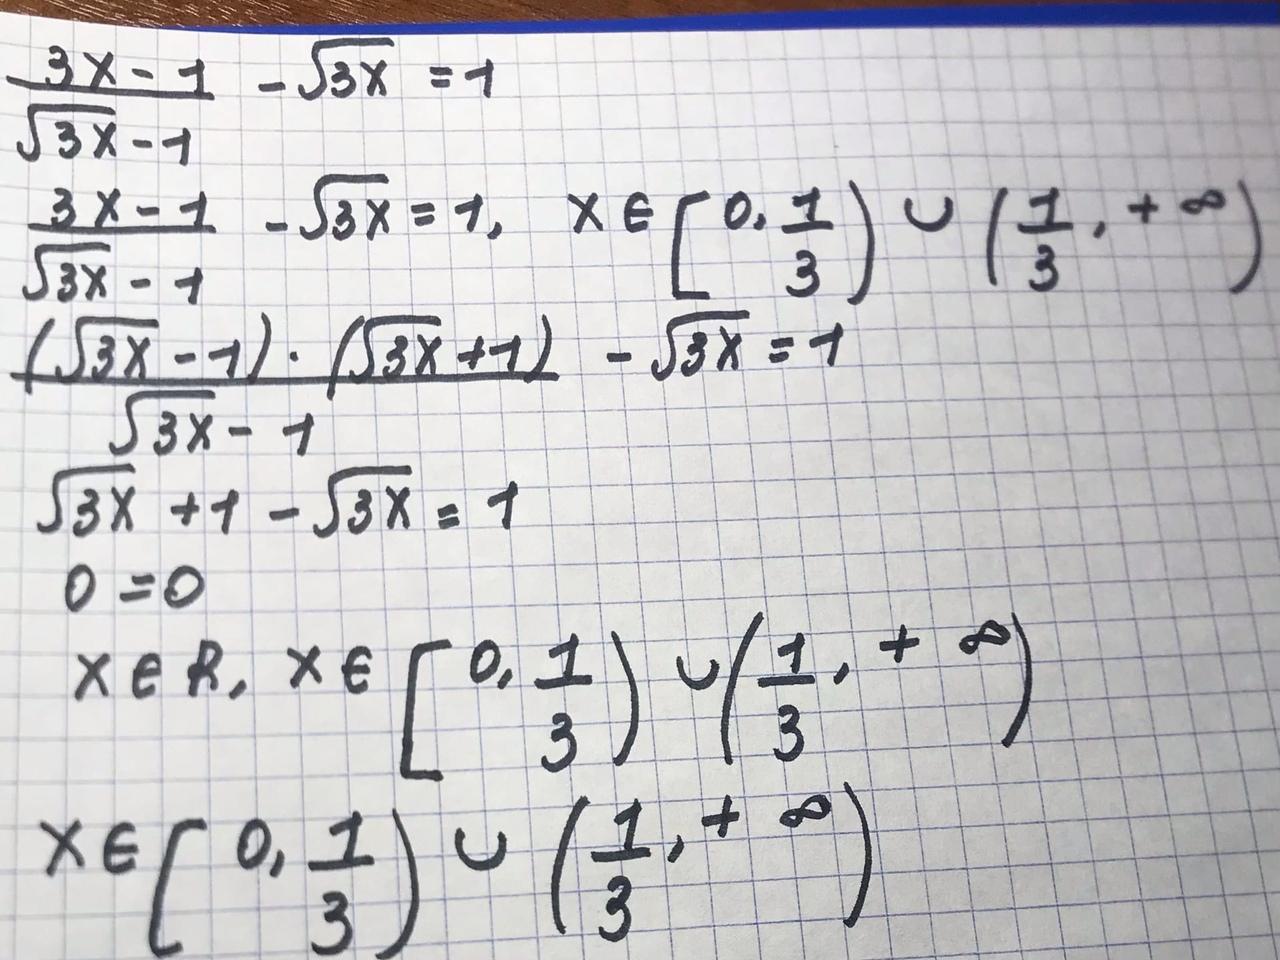 (3x-1)/(√(3x)-1) - √(3x) = 1
(3x-1)/(√(3x)-1) - √(3x) = 1, x ∈ [0, 1/3) ∪ (1/3, +∞)
((√(3x)-1)·(√(3x)+1))/(√(3x)-1) - √(3x) = 1
√(3x) + 1 - √(3x) = 1
0 = 0
x ∈ R, x ∈ [0, 1/3) ∪ (1/3, +∞)
x ∈ [0, 1/3) ∪ (1/3, +∞)